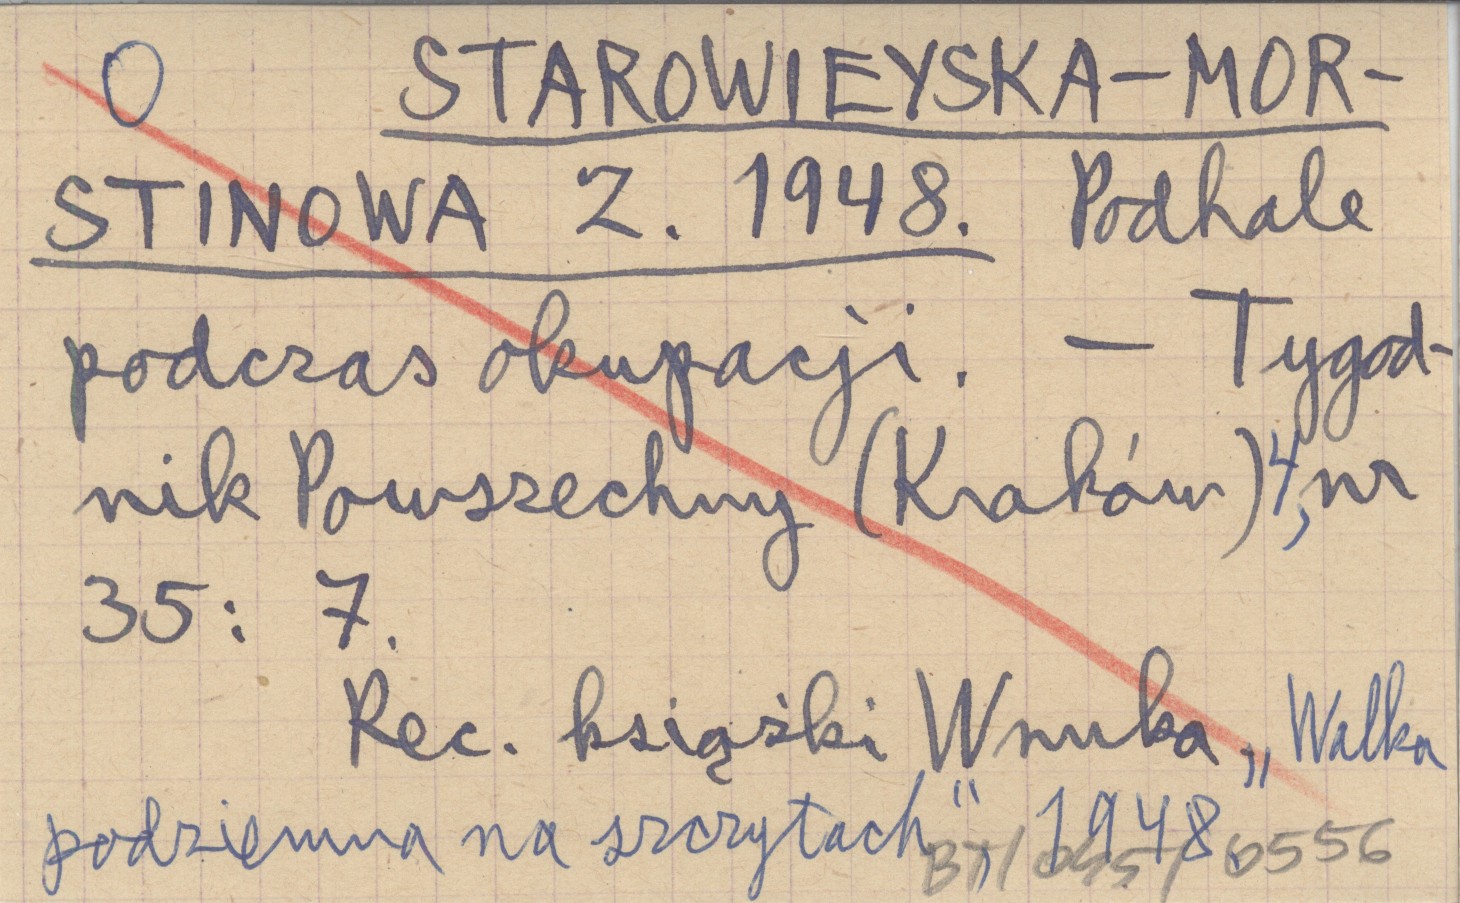 O STAROWIEYSKA-MOR-
STINOWA Z. 1948. Podhale
podczas okupacji. — Tygod-
nik Powszechny (Kraków) 4, nr
35: 7.
Rec. książki Wnuka „Walka
podziemna na szczytach", 1948.
0556